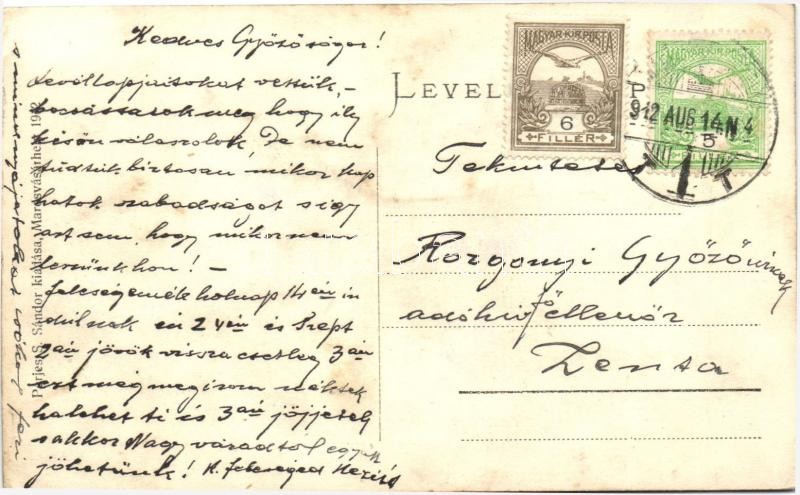 Kedves Győzőségor!
Levéllapjaitokat vettük, -
bocsássatok meg hogy ily
későn válaszolok, De nem
tudtuk biztosan mikor kap
hatok szabadságot s így
azt sem, hogy mikor nem
leszünk hon! -
Feleségemék holnap 14 én in
dulnak én 24 én is Szept
2 án jövök vissza esetleg 3 án
ezt még megirom nektek
ha lehet ti is 3 án jöjjetek
s akkor Nagyváradtól együtt
jöhetünk!
Perjes S. Sándor kiadása, Marosvásárhely
LEVEL
P
MAGYAR·KIR·POSTA
6
FILLÉR
MAGYAR·KIR·POSTA
5
912 AUG 14 N 4
Tekintetes
Korgonyi Győző úrnak
adóhiv. főellenőr
Zenta